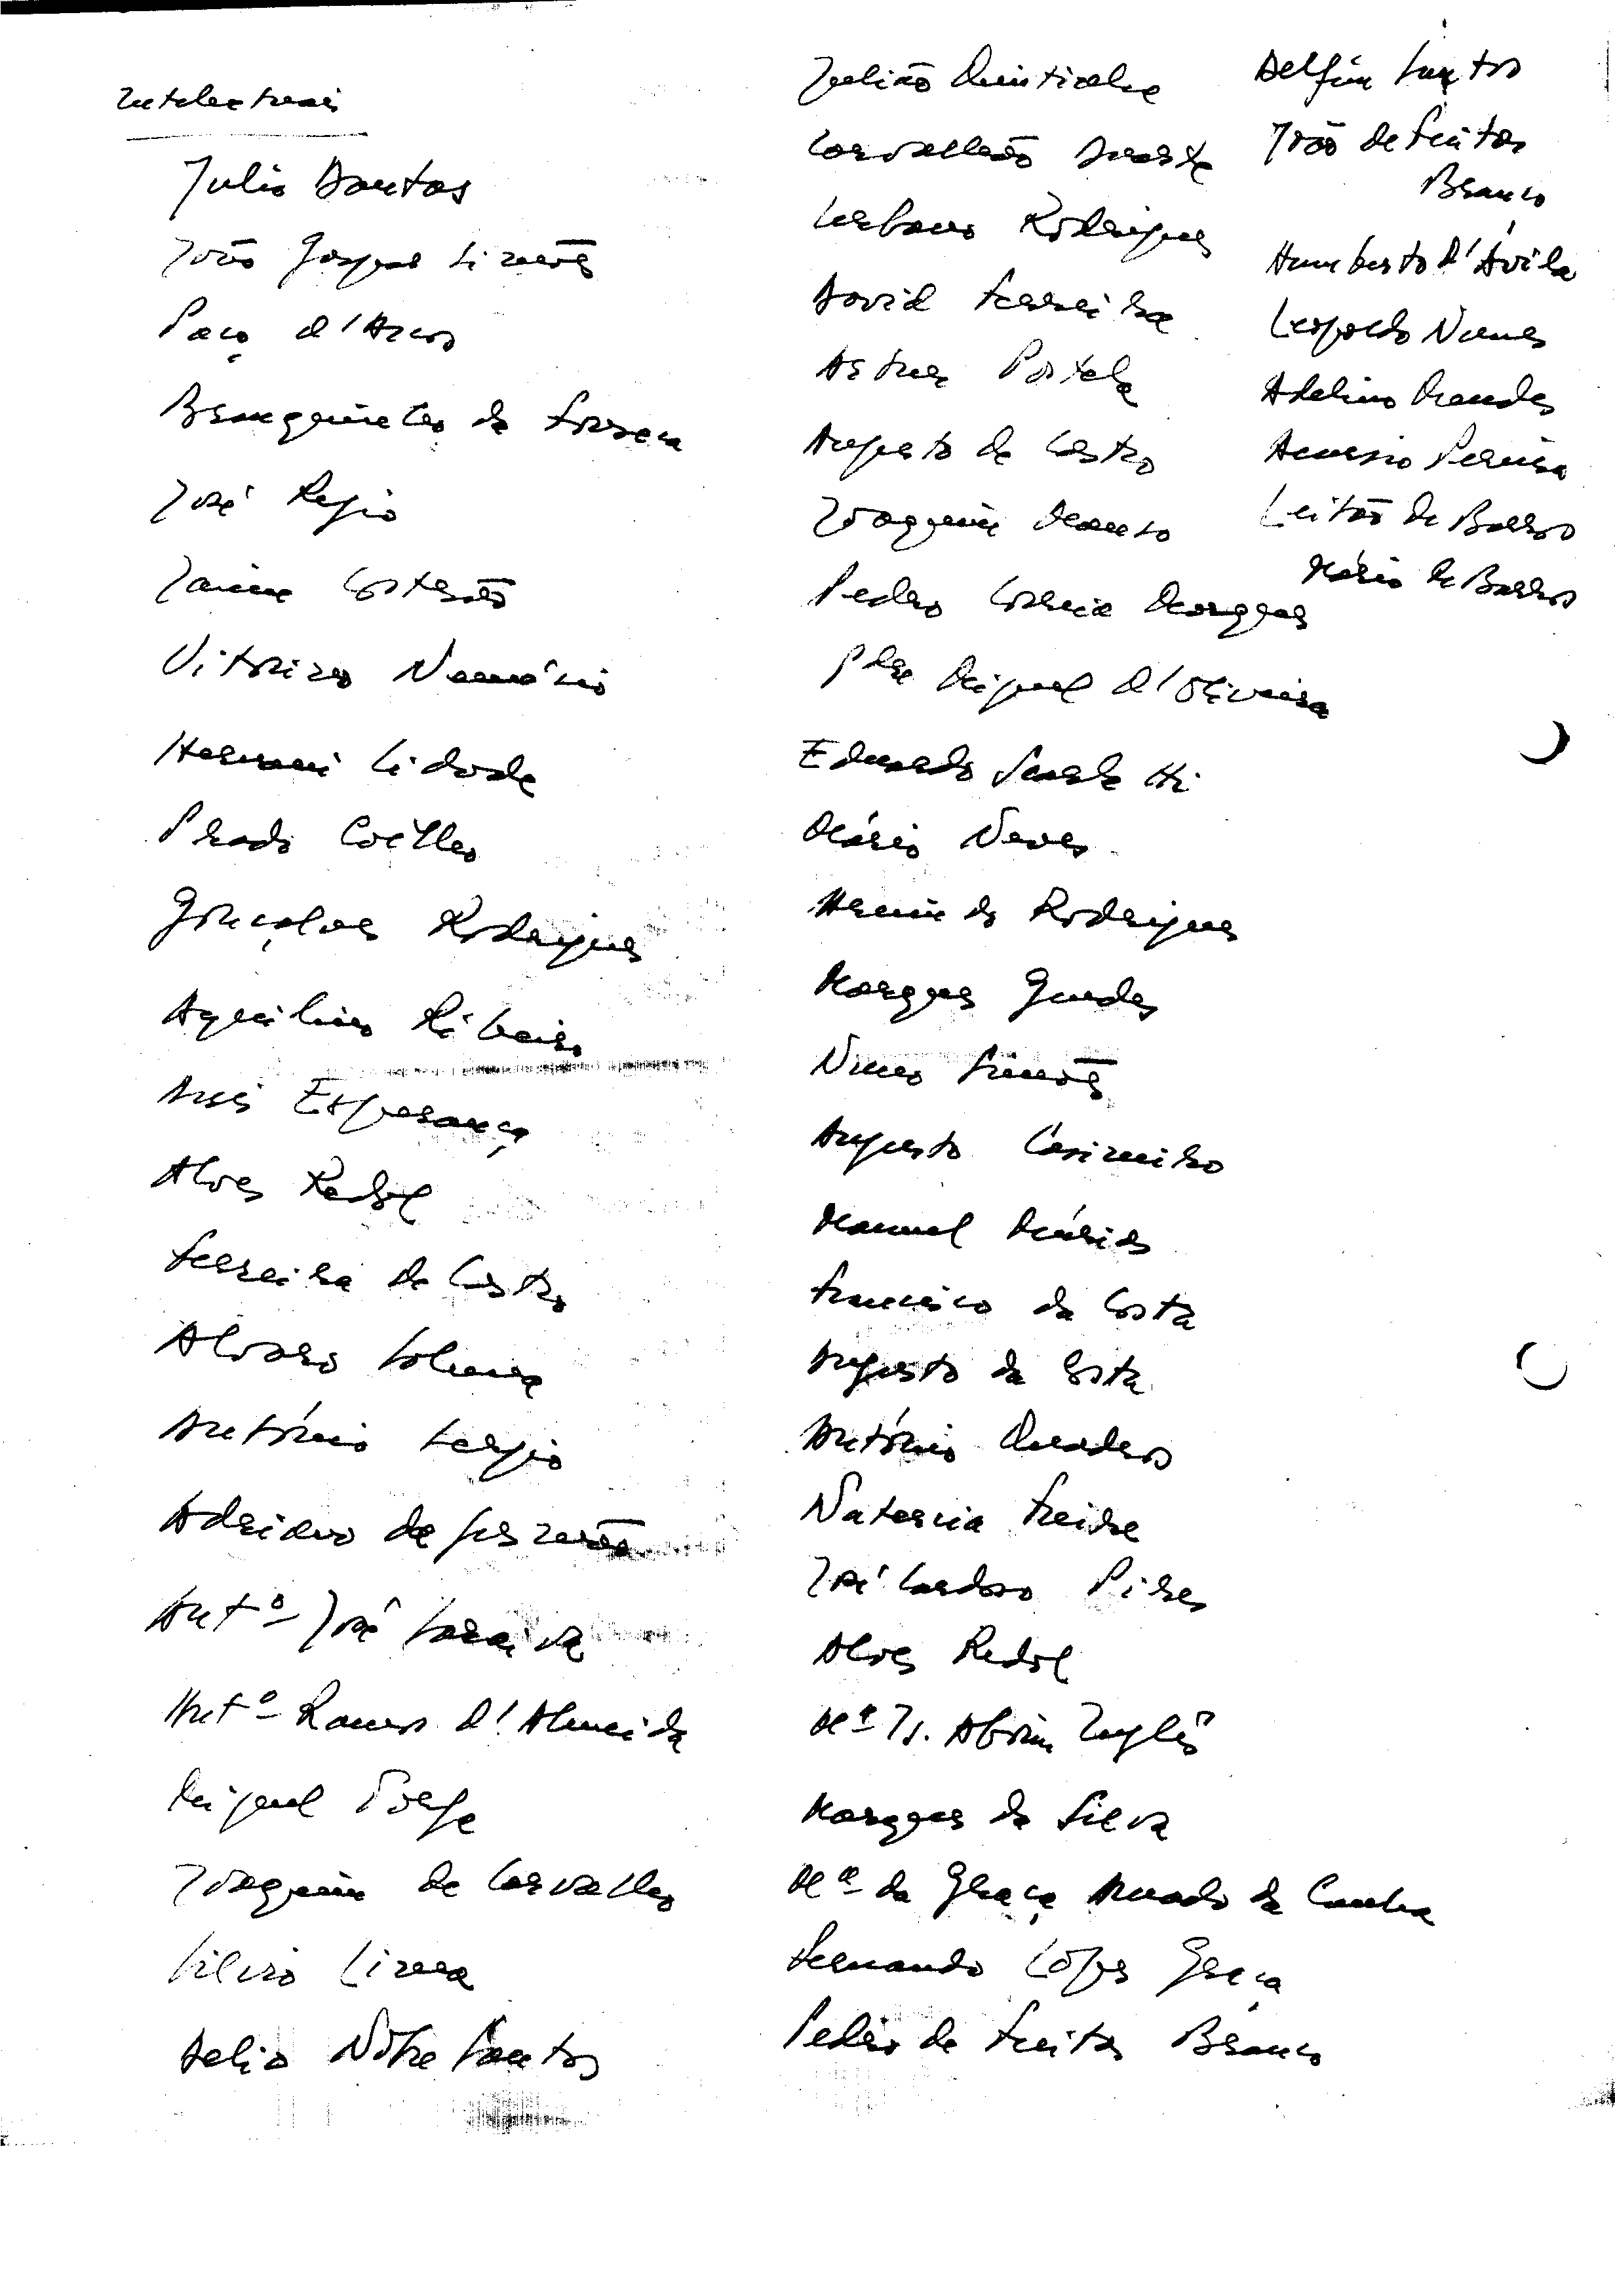 Intelectuais
Julio Dantas
João Gaspar Simões
Paço d'Arcos
Branquinho da Fonseca
José Regio
Jaime Cortesão
Vitorino Nemésio
Hernani Cidade
Prado Coelho
Gonçalves Rodrigues
Aquilino Ribeiro
Assis Esperança
Alves Redol
Ferreira de Castro
Alvaro Salema
António Sergio
Adriano de Gusmão
Antº José Saraiva
Antº Ramos d'Almeida
Miguel Torga
Joaquim de Carvalho
Silvio Lima
Delio Nobre Santos
Julião Quintinha
Carvalhão Duarte
Urbano Rodrigues
David Ferreira
Artur Portela
Augusto de Castro
Joaquim Manso
Pedro Correia Marques
Pdre Miguel d'Oliveira
Eduardo Scarlatti
Mário Neves
Armindo Rodrigues
Marques Guedes
Nuno Simões
Augusto Casimiro
Manuel Múrias
Francisco da Costa
Augusto da Costa
António Quadros
Natercia Freire
José Cardoso Pires
Alves Redol
Mª Is. Aboim Inglês
Marques da Silva
Mª da Graça Amado da Cunha
Fernando Lopes Graça
Pedro de Freitas Branco
Delfim Santos
João de Freitas
Branco
Humberto d'Ávila
Leopoldo Nunes
Adelino Mendes
Acursio Pereira
Leitão de Barros
Mário de Barros